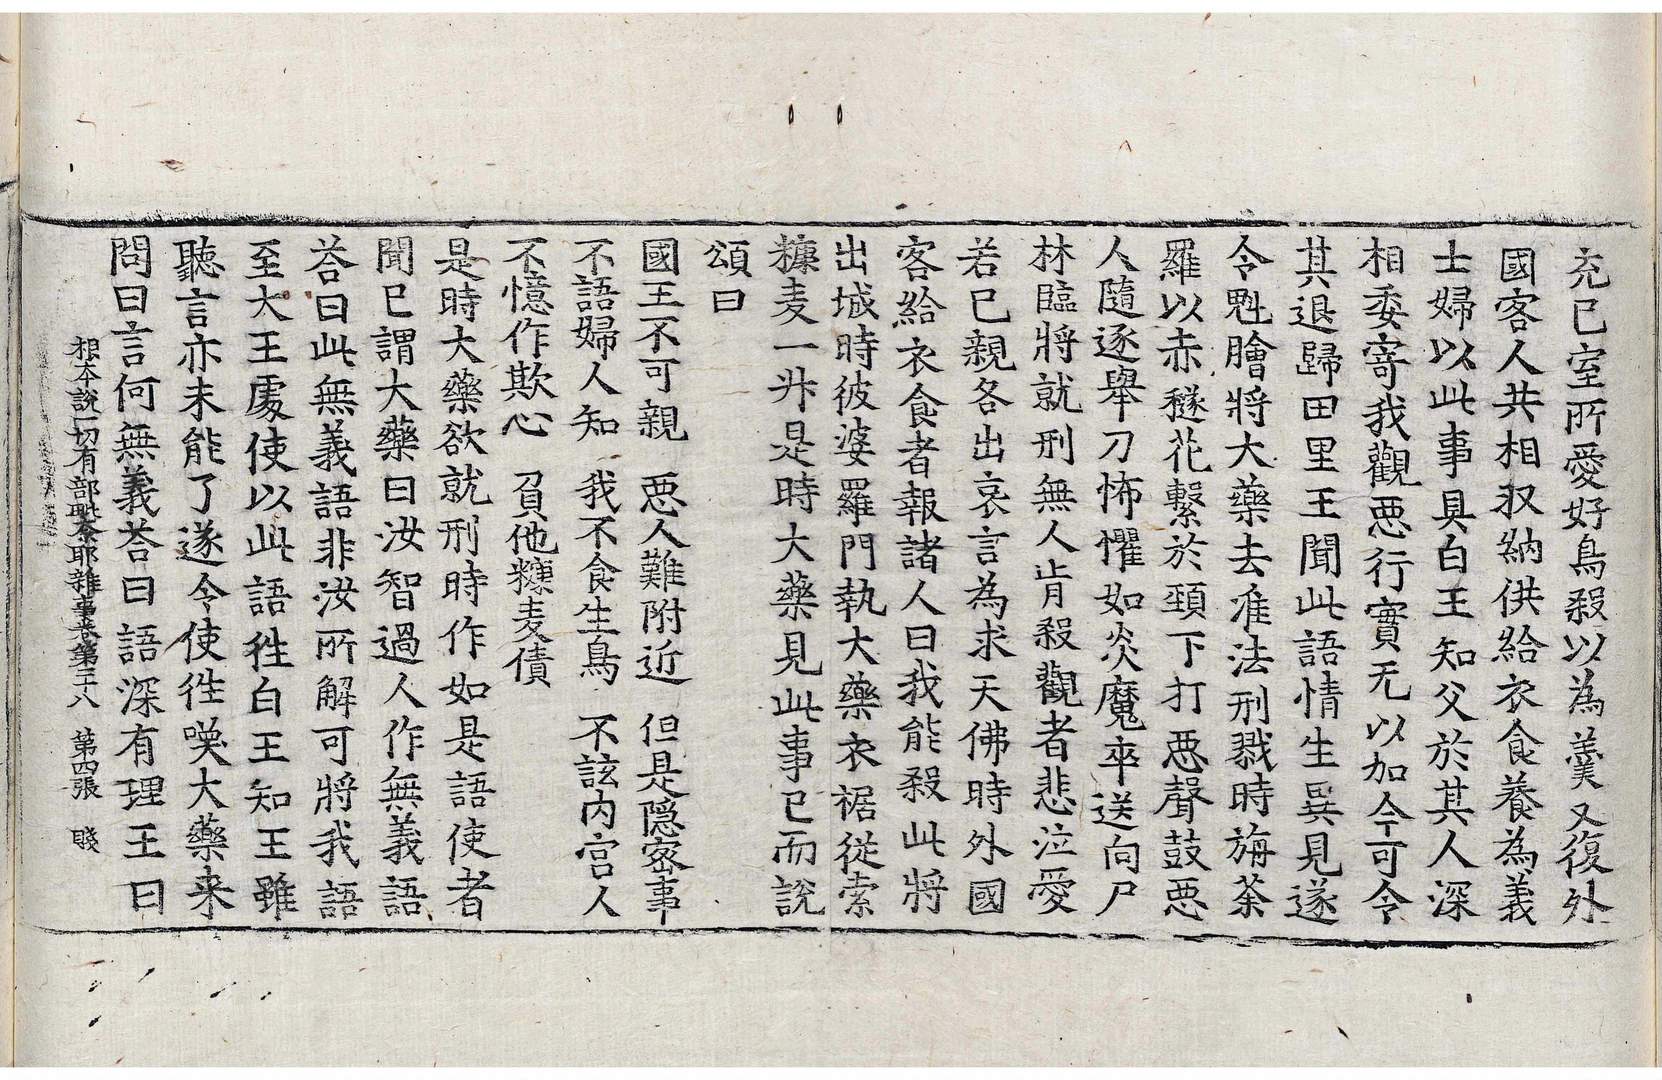 充已室所愛好鳥殺以為羹又復外
國客人共相収納供給衣食養為義
士婦以此事具白王知父於其人深
相委寄我觀惡行實无以加今可令
其退歸田里王聞此語情生異見遂
令魁膾將大藥去准法刑戮時旃荼
羅以赤䅗花繫於頚下打惡聲鼓惡
人隨逐舉刀怖懼如炎魔卒送向尸
林臨將就刑無人肯殺觀者悲泣愛
若已親各出哀言為求天佛時外國
客給衣食者報諸人曰我能殺此將
出城時彼婆羅門執大藥衣裾從索
𥻧麦一升是時大藥見此事已而說
頌曰
國王不可親　惡人難附近　但是隠密事
不語婦人知　我不食生鳥　不該內宫人
不憶作欺心　負他𥻧麦債
是時大藥欲就刑時作如是語使者
聞已謂大藥曰汝智過人作無義語
荅曰此無義語非汝所解可將我語
至大王處使以此語徃白王知王雖
聽言亦未能了遂令使徃喚大藥来
問曰言何無義荅曰語深有理王曰
根本說一切有部毗柰耶雜事卷第二十八　第四張　賤